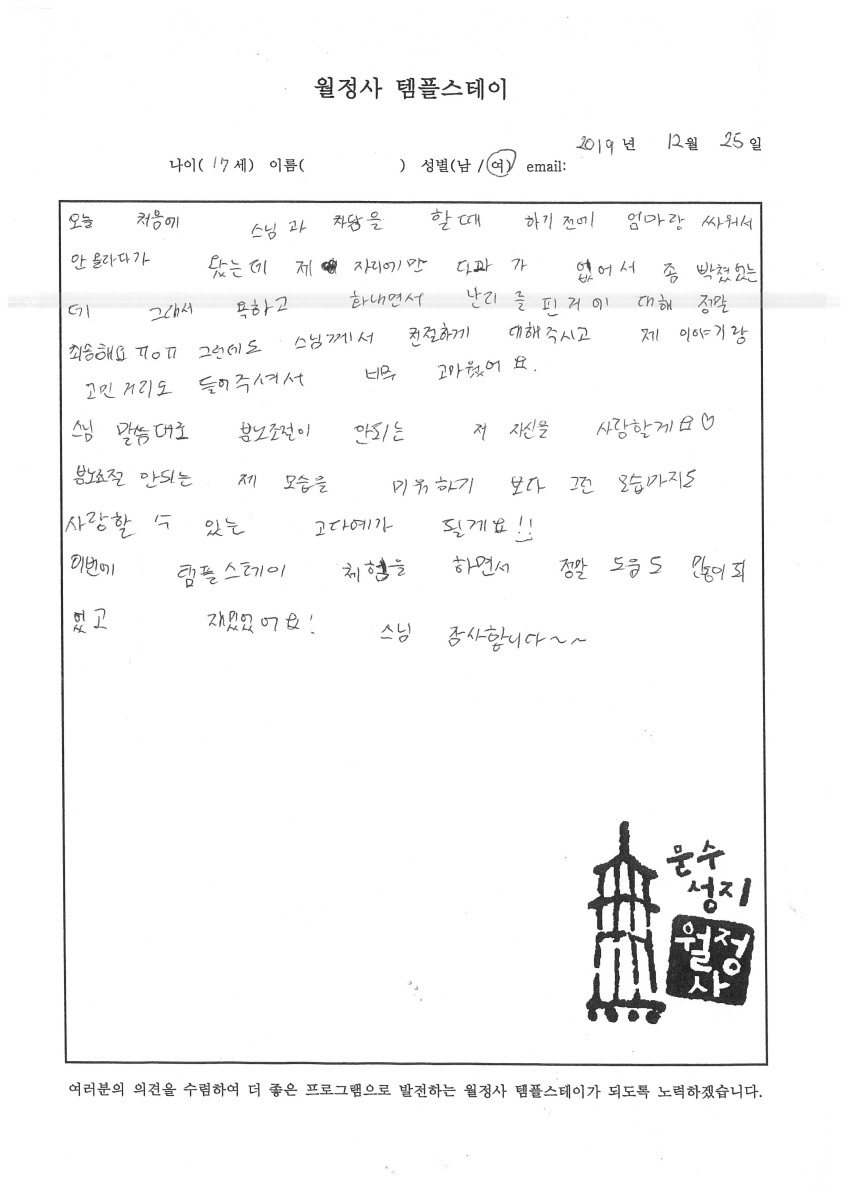 월정사 템플스테이
2019년 12월 25일
나이( 17세) 이름( ) 성별(남 / 여) email:
오늘 처음에 스님과 차담을 할때 하기 전에 엄마랑 싸워서
안 올라다가 왔는데 제 자리에만 다과가 없어서 좀 빡쳤었는
데 그래서 욕하고 화내면서 난리를 핀거에 대해 정말
죄송해요 ㅠㅇㅠ 그런데도 스님께서 친절하게 대해주시고 제 이야기랑
고민거리도 들어주셔서 너무 고마웠어요.
스님 말씀대로 분노조절이 안되는 저 자신을 사랑할게요♡
분노조절 안되는 제 모습을 미워하기 보다 그런 모습마저도
사랑할 수 있는 고다예가 될게요!!
이번에 템플스테이 체험을 하면서 정말 도움도 많이 되
었고 재밌었어요! 스님 감사합니다~~
문수
성지
월정
사
여러분의 의견을 수렴하여 더 좋은 프로그램으로 발전하는 월정사 템플스테이가 되도록 노력하겠습니다.